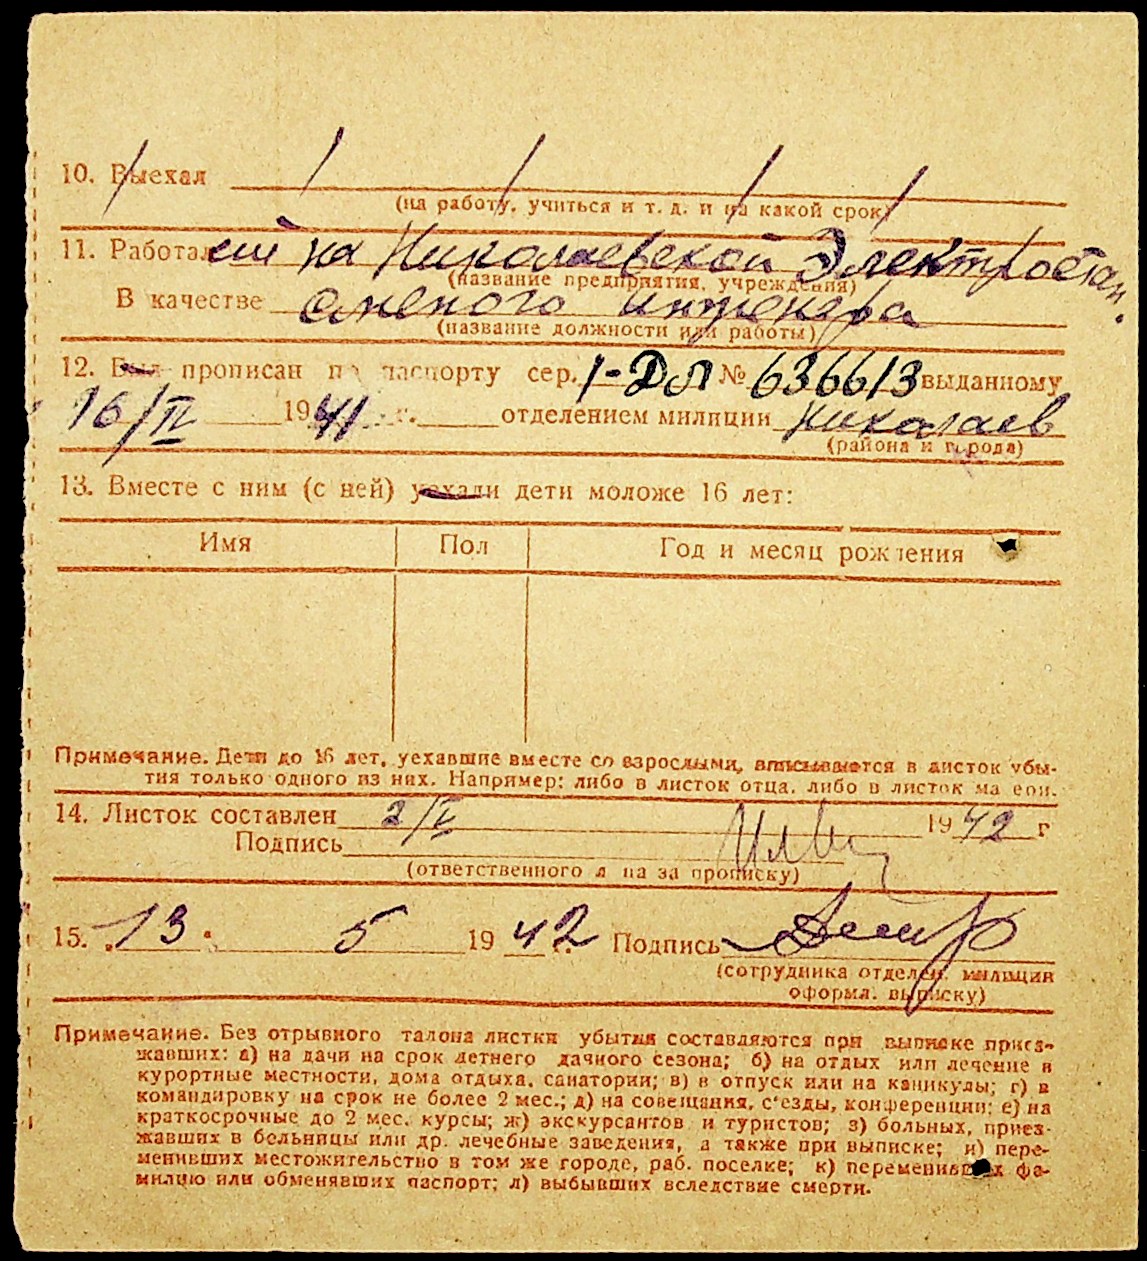 10. Выехал
(на работу, учиться и т. д. и на какой срок)
11. Работал на Николаевской Электростан.
(название предприятия, учреждения)
В качестве сменого инженера
(название должности или работы)
12. Был прописан по паспорту сер. 1-ДЛ № 636613 выданному
16/II 1941 г. отделением милиции Николаев
(района и города)
13. Вместе с ним (с ней) уехали дети моложе 16 лет:
Имя Пол Год и месяц рождения
Примечание. Дети до 16 лет, уехавшие вместе со взрослыми, вписываются в листок убы-
тия только одного из них. Например: либо в листок отца, либо в листок матери.
14. Листок составлен 2/V 1942 г
Подпись
(ответственного лица за прописку)
15. 13 5 1942 г. Подпись
(сотрудника отделен. милиции
оформл. выписку)
Примечание. Без отрывного талона листки убытия составляются при выписке приез-
жавших: а) на дачи на срок летнего дачного сезона; б) на отдых или лечение в
курортные местности, дома отдыха, санатории; в) в отпуск или на каникулы; г) в
командировку на срок не более 2 мес.; д) на совещания, с'езды, конференции; е) на
краткосрочные до 2 мес. курсы; ж) экскурсантов и туристов; з) больных, приез-
жавших в больницы или др. лечебные заведения, а также при выписке; и) пере-
менивших местожительство в том же городе, раб. поселке; к) переменивших фа-
милию или обменявших паспорт; л) выбывших вследствие смерти.